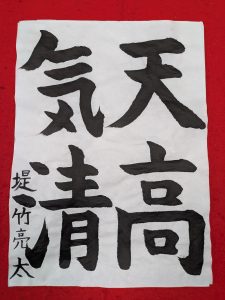 天高
気清
堤竹亮太